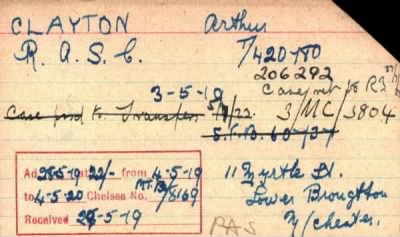 CLAYTON Arthur
R. A. S. C. T/420780
206292
3-5-19 Case ret to R3
Case ret to Transfer /22. 3/MC/3804
S.F.B. 60/37
Ad 28-5-19 at 22/- from 4-5-19
to 4-5-20 Chelsea No. /8169
Received 29-5-19
11 Myrtle St.
Lower Broughton
M/chester.
PAS